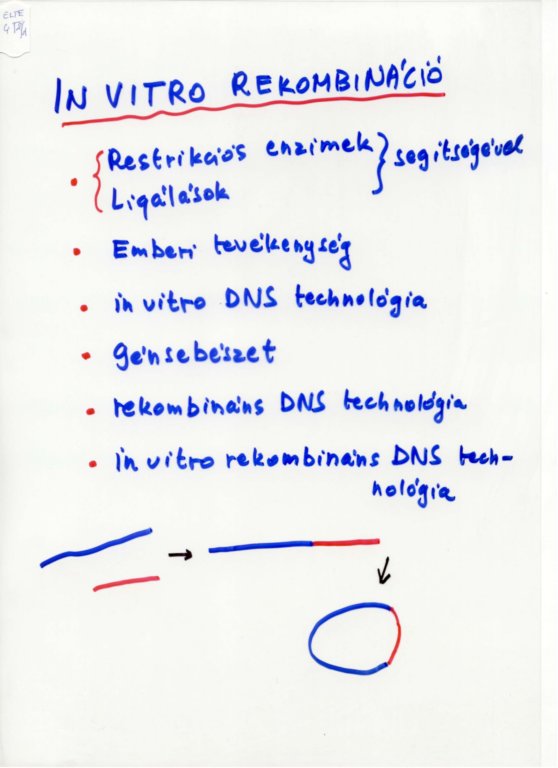 ELTE
IN VITRO REKOMBINÁCIÓ
• { Restrikciós enzimek } segítségével
Ligálások
• Emberi tevékenység
• in vitro DNS technológia
• génsebészet
• rekombináns DNS technológia
• in vitro rekombináns DNS tech-
nológia